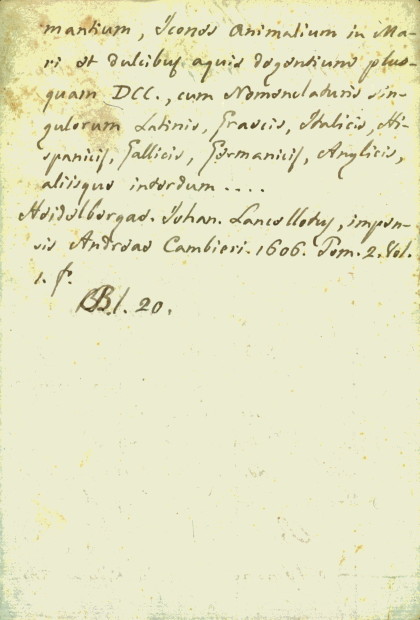 mantium, Icones Animalium in Ma-
ri et dulcibus aquis degentium plus-
quam DCC., cum Nomenclaturis sin-
gulorum Latinis, Graecis, Italicis, Hi-
spanicis, Gallicis, Germanicis, Anglicis,
aliisque interdum ....
Heidelbergae. Johan. Lancellotus, impen-
sis Andreae Cambieri. 1606. Tom. 2. Vol.
1. f.
Bl. 20.